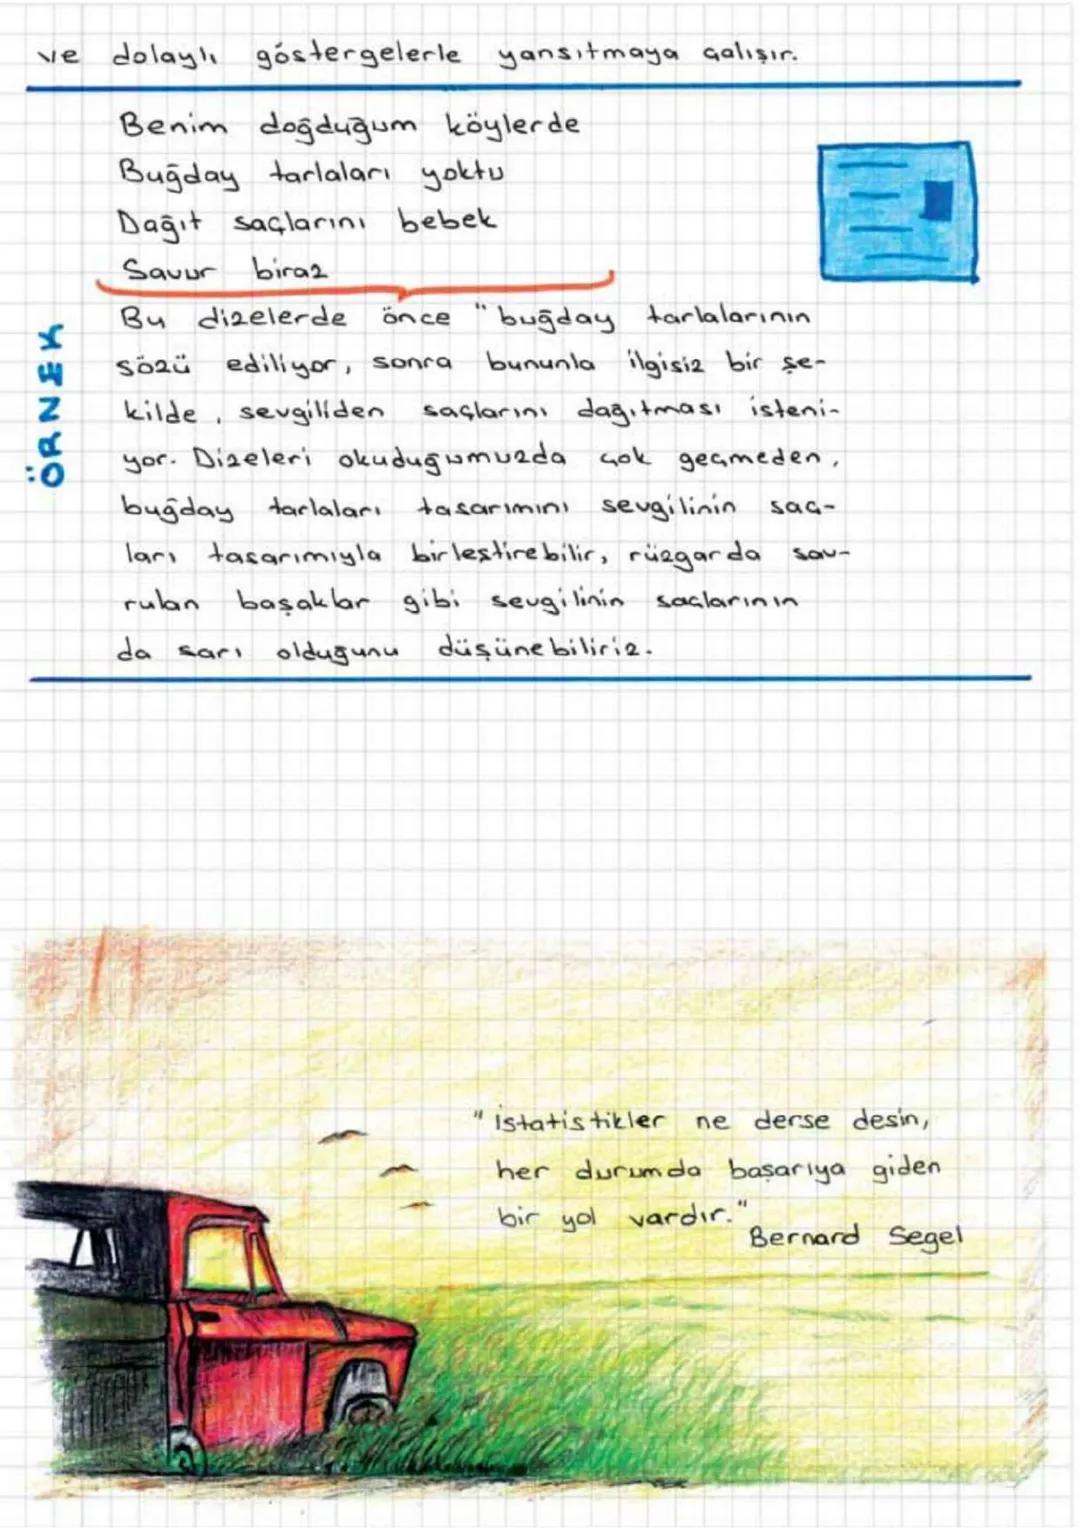 ve dolaylı göstergelerle yansıtmaya çalışır.
Benim doğduğum köylerde
Buğday tarlaları yoktu
Dağıt saçlarını bebek
Savur biraz
ÖRNEK
Bu dizelerde önce "buğday tarlalarının
sözü ediliyor, sonra bununla ilgisiz bir şe-
kilde, sevgiliden saçlarını dağıtması isteni-
yor. Dizeleri okuduğumuzda çok geçmeden,
buğday tarlaları tasarımını sevgilinin saç-
ları tasarımıyla birleştirebilir, rüzgarda sav-
rulan başaklar gibi sevgilinin saçlarının
da sarı olduğunu düşünebiliriz.
"İstatistikler ne derse desin,
her durumda başarıya giden
bir yol vardır."
Bernard Segel